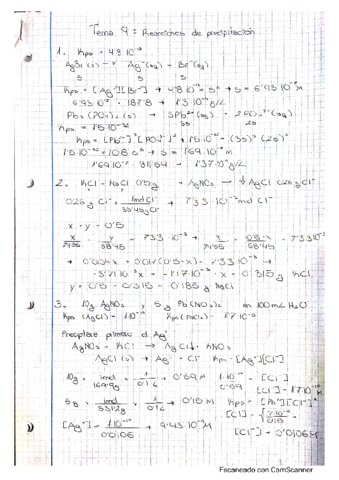 Tema 9: Reacciones de precipitación
1. Kps = 4'8·10⁻¹³
AgBr (s) → Ag⁺(aq) + Br⁻(aq)
s s s
Kps = [Ag⁺][Br⁻] → 4'8·10⁻¹³ = s² → s = 6'93·10⁻⁷ M
6'93·10⁻⁷ · 187'8 = 1'3·10⁻⁴ g/L
Pb₃(PO₄)₂ (s) → 3Pb²⁺(aq) + 2PO₄³⁻(aq)
3s 2s
Kps = 1'5·10⁻³²
Kps = [Pb²⁺]³[PO₄³⁻]² → 1'5·10⁻³² = (3s)³(2s)²
1'5·10⁻³² = 108 s⁵ → s = 1'69·10⁻⁷ M
2. KCl + NaCl 0'5g + AgNO₃ → ↓AgCl 0'26g Cl⁻
0'26g Cl⁻ · 1mol Cl⁻ / 35'45g Cl⁻ → 7'33·10⁻³ mol Cl⁻
x + y = 0'5
x/74'55 + y/58'45 = 7'33·10⁻³ → x/74'55 + 0'5-x/58'45 = 7'33·10⁻³
x = 0'315g KCl
y = 0'5 - 0'315 = 0'185g NaCl
3. 10g AgNO₃ y 5g Pb(NO₃)₂ en 100mL H₂O
Kps (AgCl) = 1·10⁻¹⁰ Kps (PbCl₂) = 1'7·10⁻⁵
Precipitará primero el Ag⁺
AgNO₃ + KCl → AgCl↓ + KNO₃
AgCl (s) → Ag⁺ + Cl⁻ Kps = [Ag⁺][Cl⁻]
10g · 1mol/169'9g · 1/0'1L → 0'59M 1·10⁻¹⁰/0'59 = [Cl⁻]
[Cl⁻] = 1'7·10⁻¹⁰ M
5g · 1mol/331'2g · 1/0'1L → 0'15M Kps = [Pb²⁺][Cl⁻]²
[Cl⁻] = √1'7·10⁻⁵/0'15
[Ag⁺] = 1·10⁻¹⁰/0'0106 → 9'43·10⁻⁹ M [Cl⁻] = 0'0106M
Escaneado con CamScanner